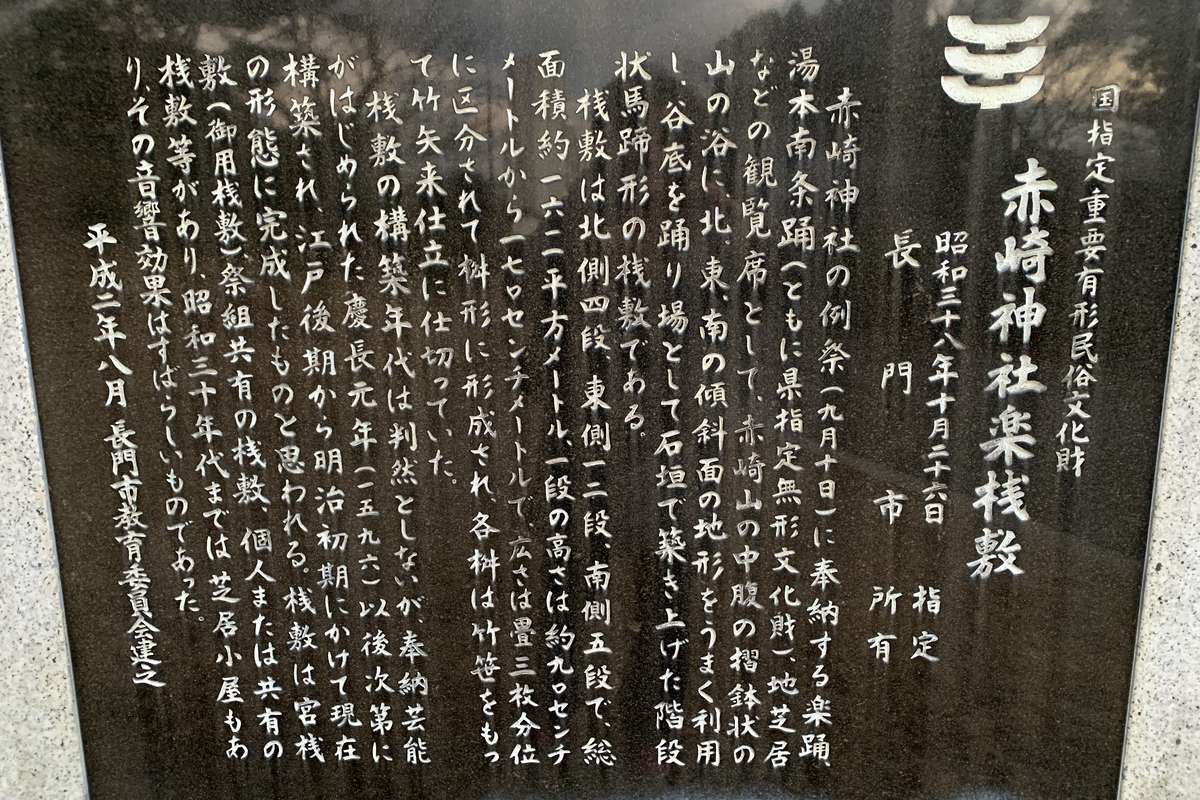 国指定重要有形民俗文化財
赤崎神社楽桟敷
昭和三十八年十月二十六日　指定
長門市　所有
赤崎神社の例祭(九月十日)に奉納する楽踊、
湯本南条踊(ともに県指定無形文化財)、地芝居
などの観覧席として、赤崎山の中腹の摺鉢状の
山の浴に、北、東、南の傾斜面の地形をうまく利用
し、谷底を踊り場として石垣で築き上げた階段
状馬蹄形の桟敷である。
桟敷は北側四段、東側一二段、南側五段で、総
面積約一六二一平方メートル、一段の高さは約九〇センチ
メートルから一七〇センチメートルで、広さは畳三枚分位
に区分されて桝形に形成され、各桝は竹笹をもっ
て竹矢来仕立に仕切っていた。
桟敷の構築年代は判然としないが、奉納芸能
がはじめられた慶長元年(一五九六)以後次第に
構築され、江戸後期から明治初期にかけて現在
の形態に完成したものと思われる。桟敷は宮桟
敷(御用桟敷)、祭組共有の桟敷、個人または共有の
桟敷等があり、昭和三十年代までは芝居小屋もあ
り、その音響効果はすばらしいものであった。
平成二年八月　長門市教育委員会建之